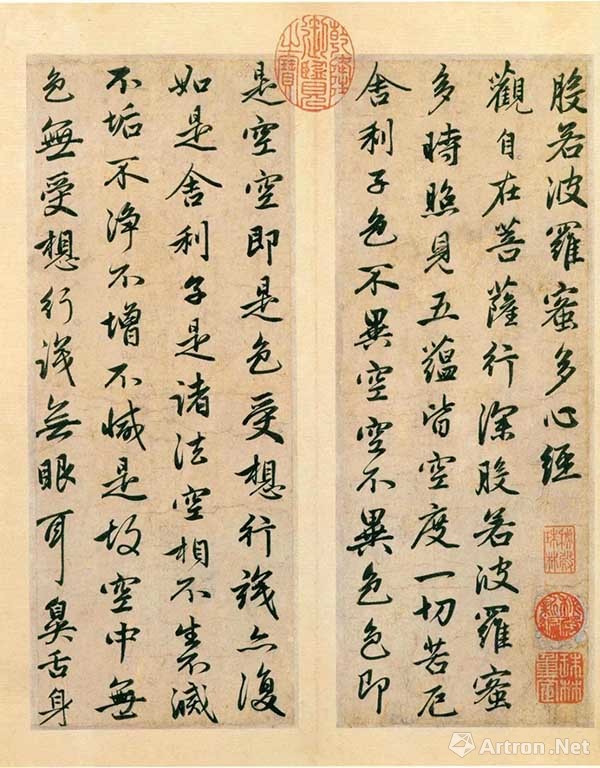 乾隆御覽之寶
般若波羅蜜多心經
觀自在菩薩行深般若波羅蜜
多時照見五蘊皆空度一切苦厄
舍利子色不異空空不異色色即
是空空即是色受想行識亦復
如是舍利子是諸法空相不生不滅
不垢不淨不增不減是故空中無
色無受想行識無眼耳鼻舌身
秘殿珠林
珠林重定
Artron.Net